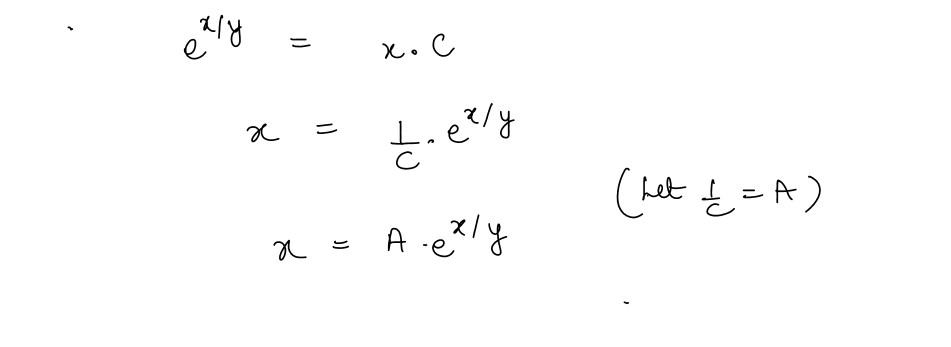 e^{x/y} = x . C
x = 1/C . e^{x/y}
(Let 1/C = A)
x = A . e^{x/y}